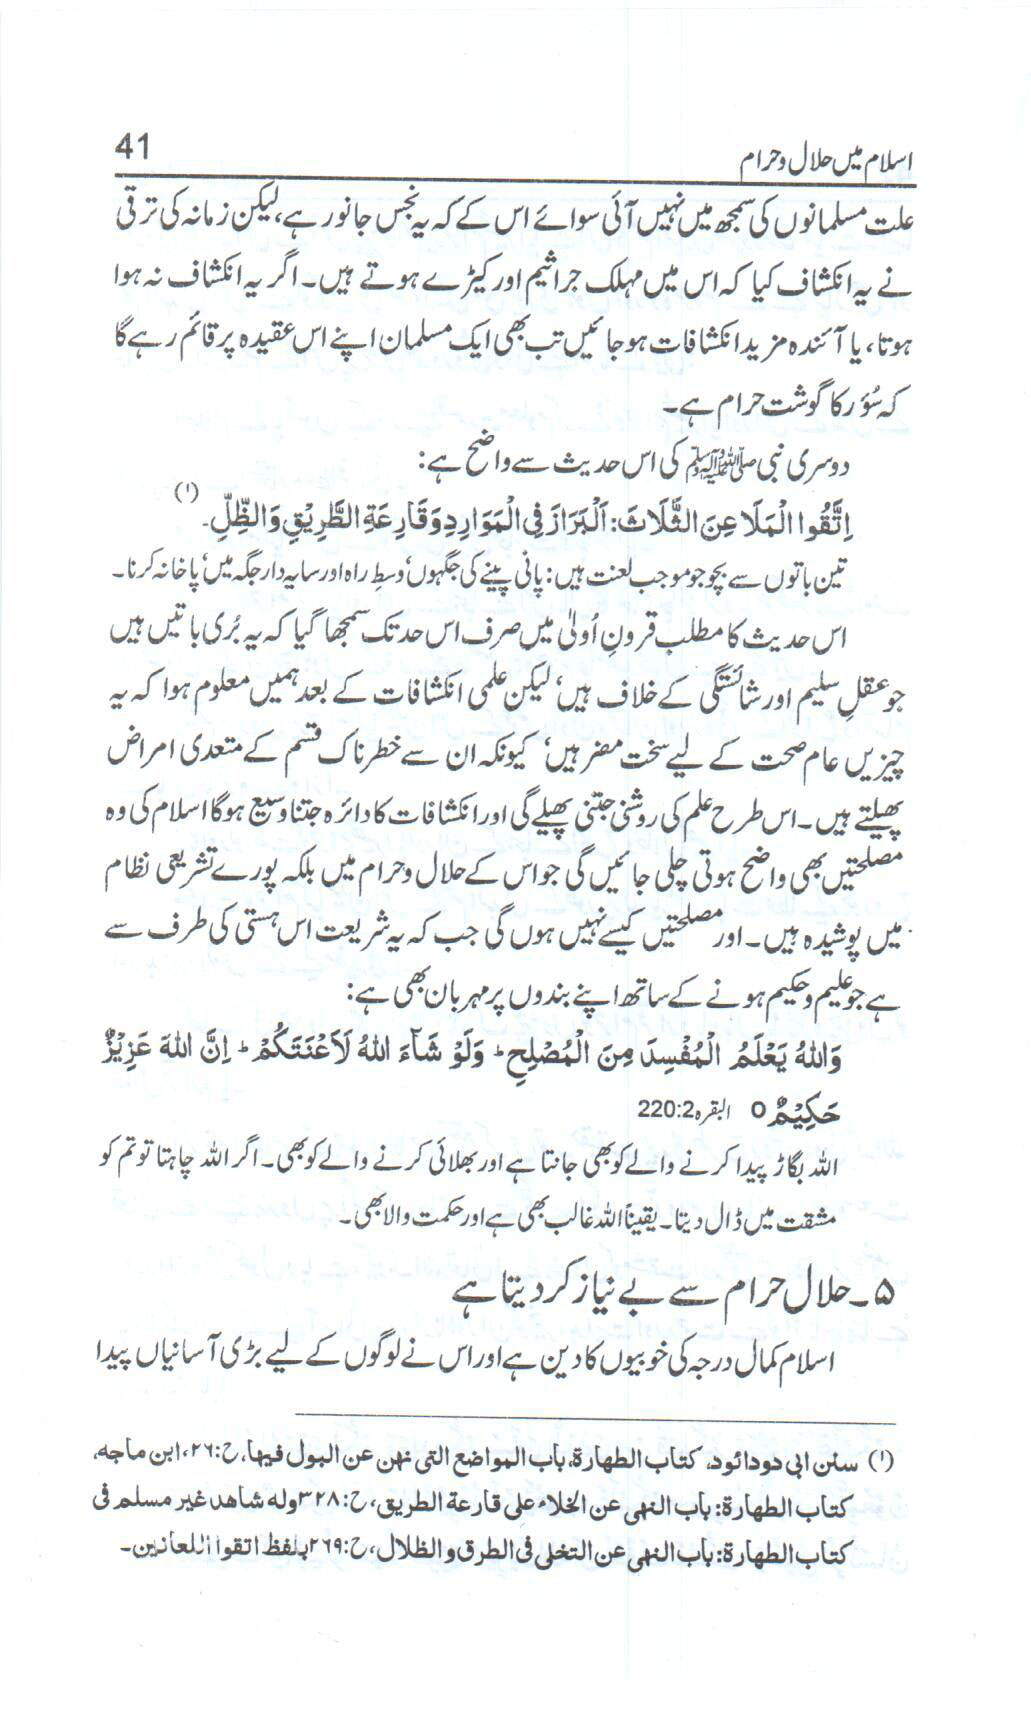 اسلام میں حلال و حرام 41
علت مسلمانوں کی سمجھ میں نہیں آئی سوائے اس کے کہ یہ نجس جانور ہے، لیکن زمانہ کی ترقی
نے یہ انکشاف کیا کہ اس میں مہلک جراثیم اور کیڑے ہوتے ہیں۔ اگر یہ انکشاف نہ ہوا
ہوتا، یا آئندہ مزید انکشافات ہو جائیں تب بھی ایک مسلمان اپنے اس عقیدہ پر قائم رہے گا
کہ سُؤر کا گوشت حرام ہے۔
دوسری نبی ﷺ کی اس حدیث سے واضح ہے:
اِتَّقُوا الْمَلَاعِنَ الثَّلَاثَ: اَلْبَرَازَ فِی الْمَوَارِدِ وَقَارِعَةِ الطَّرِیْقِ وَالظِّلِّ۔ (۱)
تین باتوں سے بچو جو موجب لعنت ہیں: پانی پینے کی جگہوں‘ وسطِ راہ اور سایہ دار جگہ میں‘ پاخانہ کرنا۔
اس حدیث کا مطلب قرونِ اُولیٰ میں صرف اس حد تک سمجھا گیا کہ یہ بُری باتیں ہیں
جو عقلِ سلیم اور شائستگی کے خلاف ہیں‘ لیکن علمی انکشافات کے بعد ہمیں معلوم ہوا کہ یہ
چیزیں عام صحت کے لیے سخت مضر ہیں‘ کیونکہ ان سے خطرناک قسم کے متعدی امراض
پھیلتے ہیں۔ اس طرح علم کی روشنی جتنی پھیلے گی اور انکشافات کا دائرہ جتنا وسیع ہوگا اسلام کی وہ
مصلحتیں بھی واضح ہوتی چلی جائیں گی جو اس کے حلال و حرام میں بلکہ پورے تشریعی نظام
میں پوشیدہ ہیں۔ اور مصلحتیں کیسے نہیں ہوں گی جب کہ یہ شریعت اس ہستی کی طرف سے
ہے جو علیم و حکیم ہونے کے ساتھ اپنے بندوں پر مہربان بھی ہے:
وَاللہُ یَعْلَمُ الْمُفْسِدَ مِنَ الْمُصْلِحِ ؕ وَلَوْ شَآءَ اللہُ لَاَعْنَتَکُمْ ؕ اِنَّ اللہَ عَزِیْزٌ
حَکِیْمٌ ○ البقرہ 220:2
اللہ بگاڑ پیدا کرنے والے کو بھی جانتا ہے اور بھلائی کرنے والے کو بھی۔ اگر اللہ چاہتا تو تم کو
مشقت میں ڈال دیتا۔ یقیناً اللہ غالب بھی ہے اور حکمت والا بھی۔
۵۔ حلال حرام سے بے نیاز کر دیتا ہے
اسلام کمال درجہ کی خوبیوں کا دین ہے اور اس نے لوگوں کے لیے بڑی آسانیاں پیدا
(۱) سنن ابی دودائود، کتاب الطھارة، باب المواضع التی نھن عن البول فیھا، ح:۲۶، ابن ماجه،
کتاب الطھارة: باب النھی عن الخلاء علی قارعة الطریق، ح:۳۲۸ وله شاھد غیر مسلم فی
کتاب الطھارة: باب النھی عن التخلی فی الطرق و الظلال، ح:۲۶۹ بلفظ اتقوا اللعانین۔